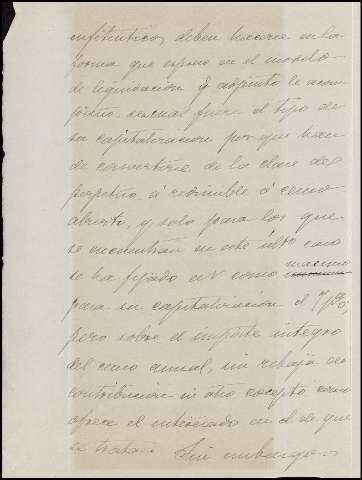 enfiteuticos, deben hacerse en la
forma que expone en el modelo
de liquidación q̃ adjunto le acom
paño, sea cual fuere el tipo de
su capitalizacion por que han
de convertirse de la clase del
perpetuo á redimible á censo
abierto, y solo para los que
se encuentran en este últº caso
se ha fijado como maximo
para su capitalización el 7 p%,
pero sobre el importe integro
del censo anual, sin rebaja de
contribución ni otro concepto como
ofrece el interesado en el de que
se trata. Sin embargo